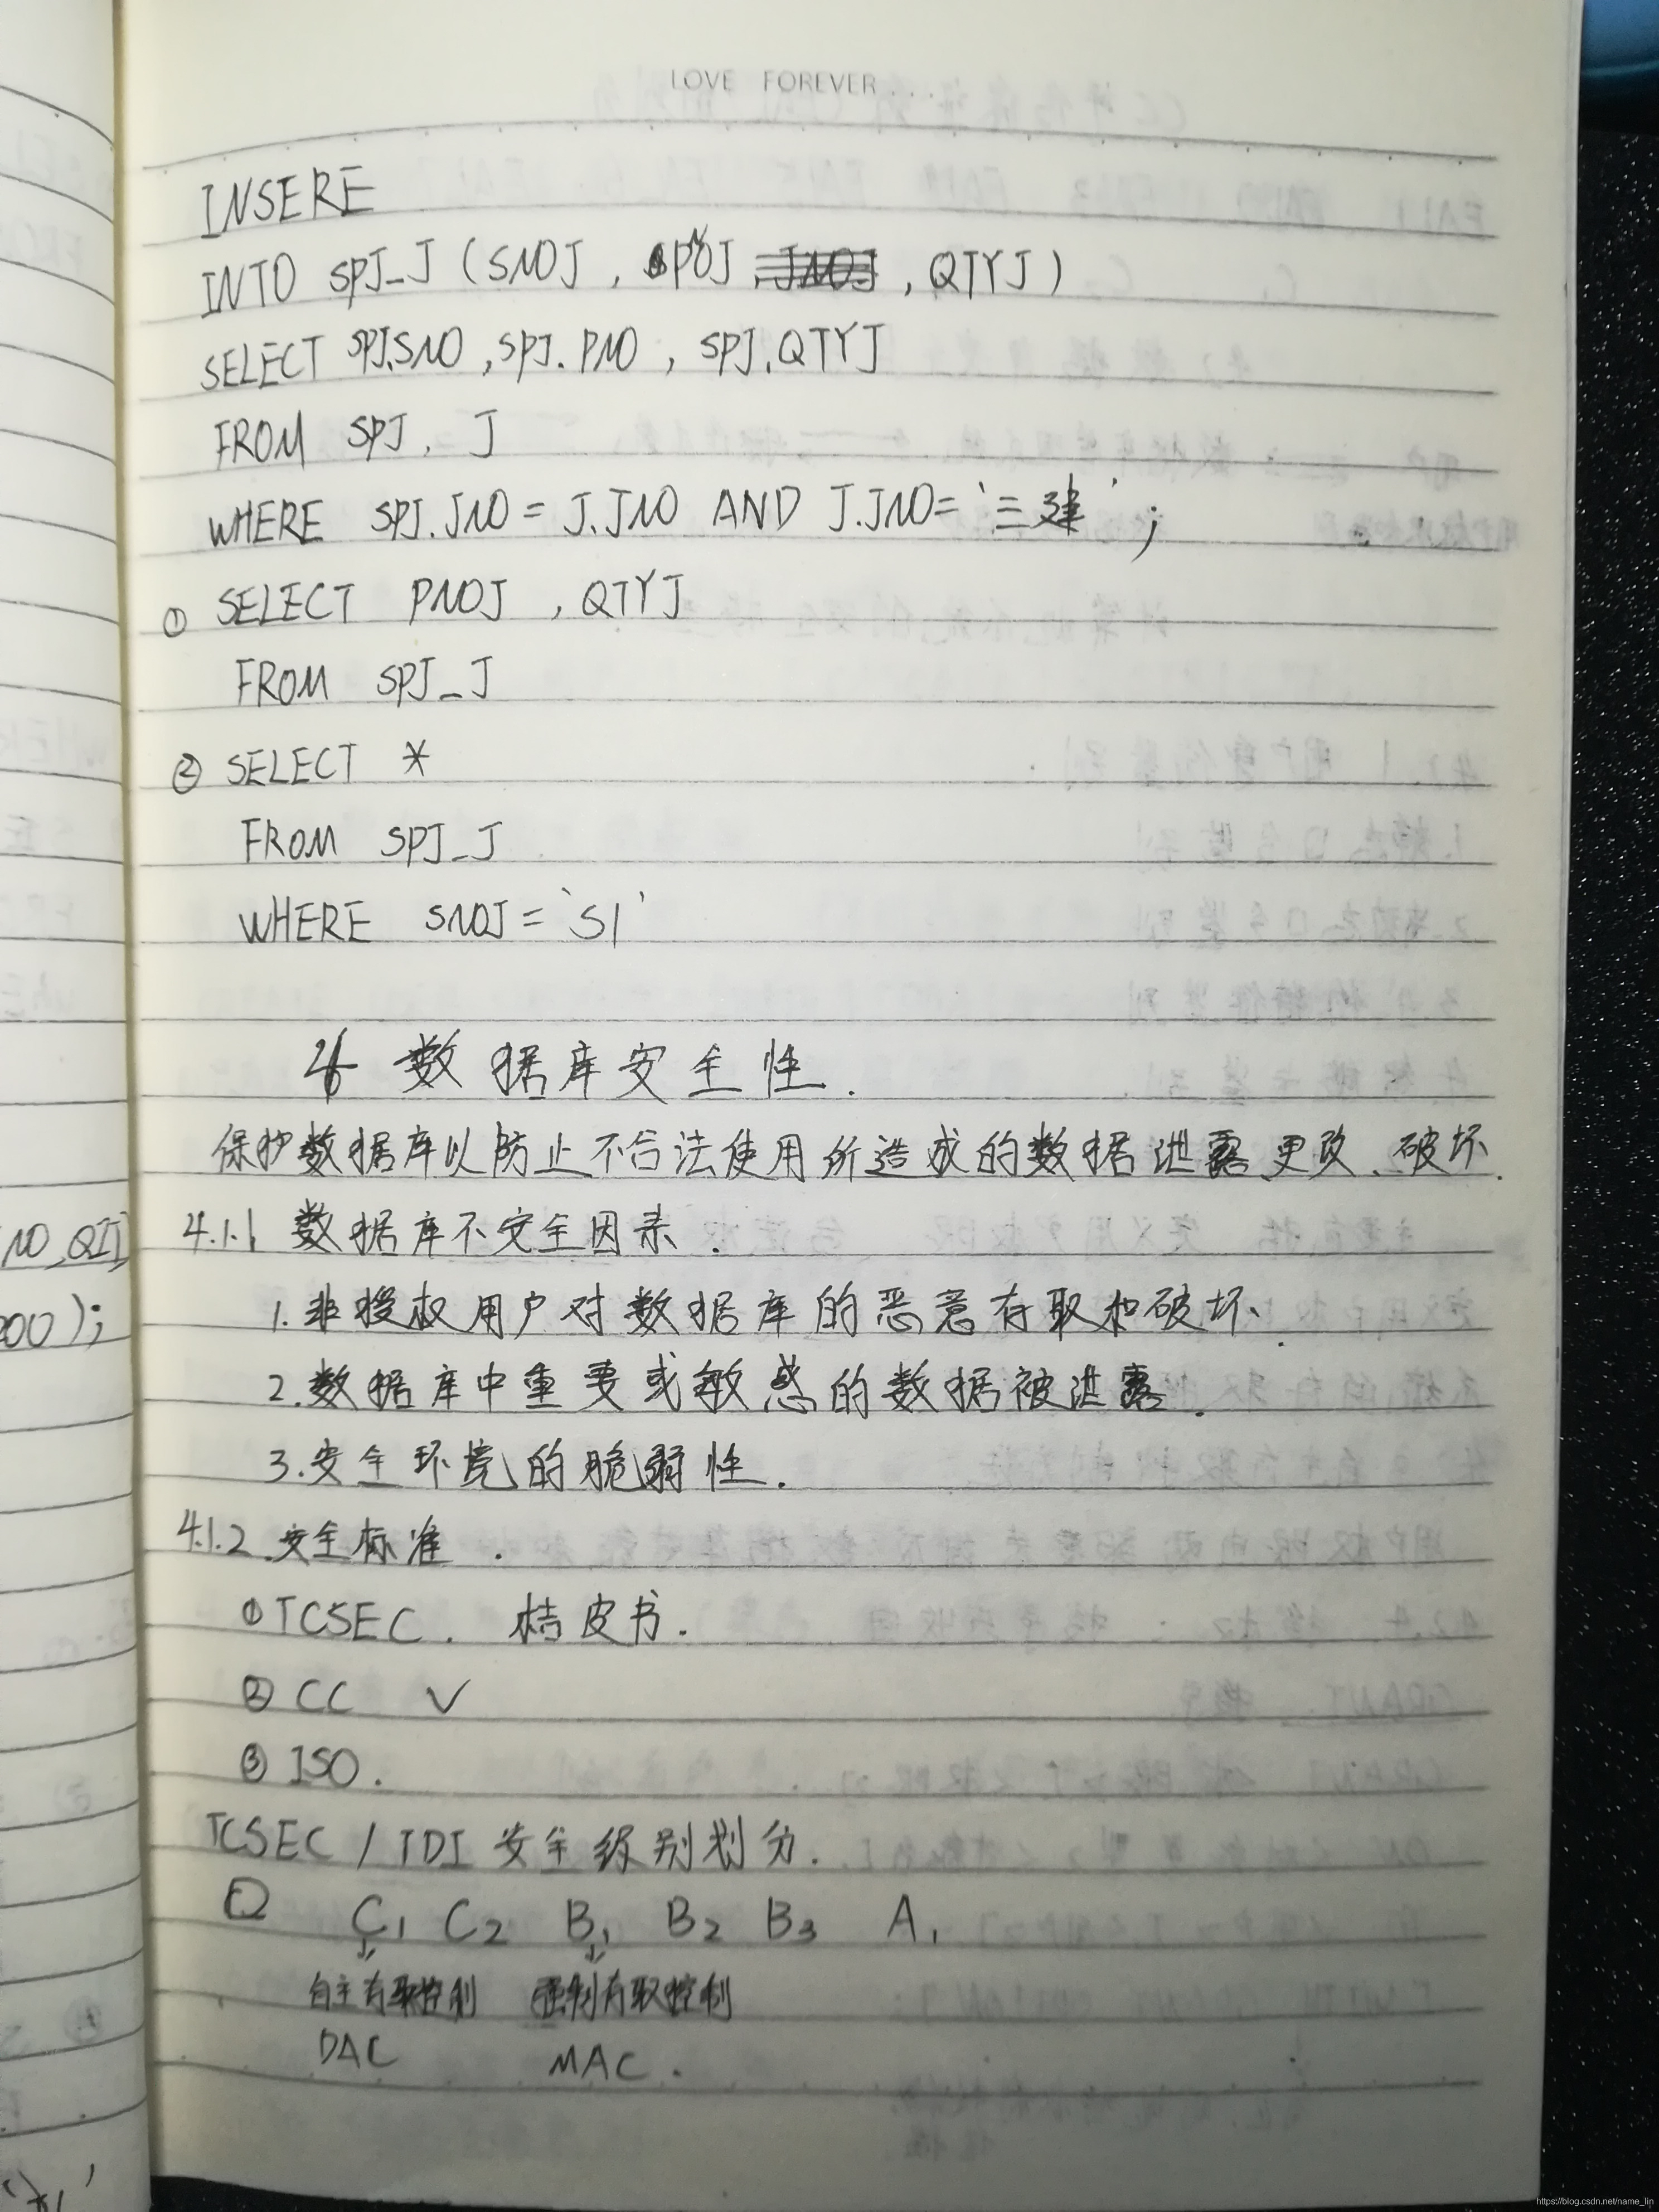 LOVE FOREVER...
INSERE
INTO SPJ_J (SNOJ , PNOJ , QTYJ)
SELECT SPJ.SNO , SPJ. PNO , SPJ.QTYJ
FROM SPJ, J
WHERE SPJ.JNO = J.JNO AND J.JNO= '三建' ;
① SELECT PNOJ , QTYJ
FROM SPJ_J
② SELECT *
FROM SPJ_J
WHERE SNOJ = 'S1'
4 数据库安全性.
保护数据库以防止不合法使用所造成的数据泄露更改、破坏.
4.1.1 数据库不安全因素.
NO QTY
1. 非授权用户对数据库的恶意存取和破坏.
00);
2. 数据库中重要或敏感的数据被泄露.
3. 安全环境的脆弱性.
4.1.2 安全标准.
① TCSEC. 桔皮书.
② CC √
③ ISO.
TCSEC / TDI 安全级别划分.
D C1 C2 B1 B2 B3 A1
自主存取控制 强制存取控制
DAC MAC.
https://blog.csdn.net/name_lin